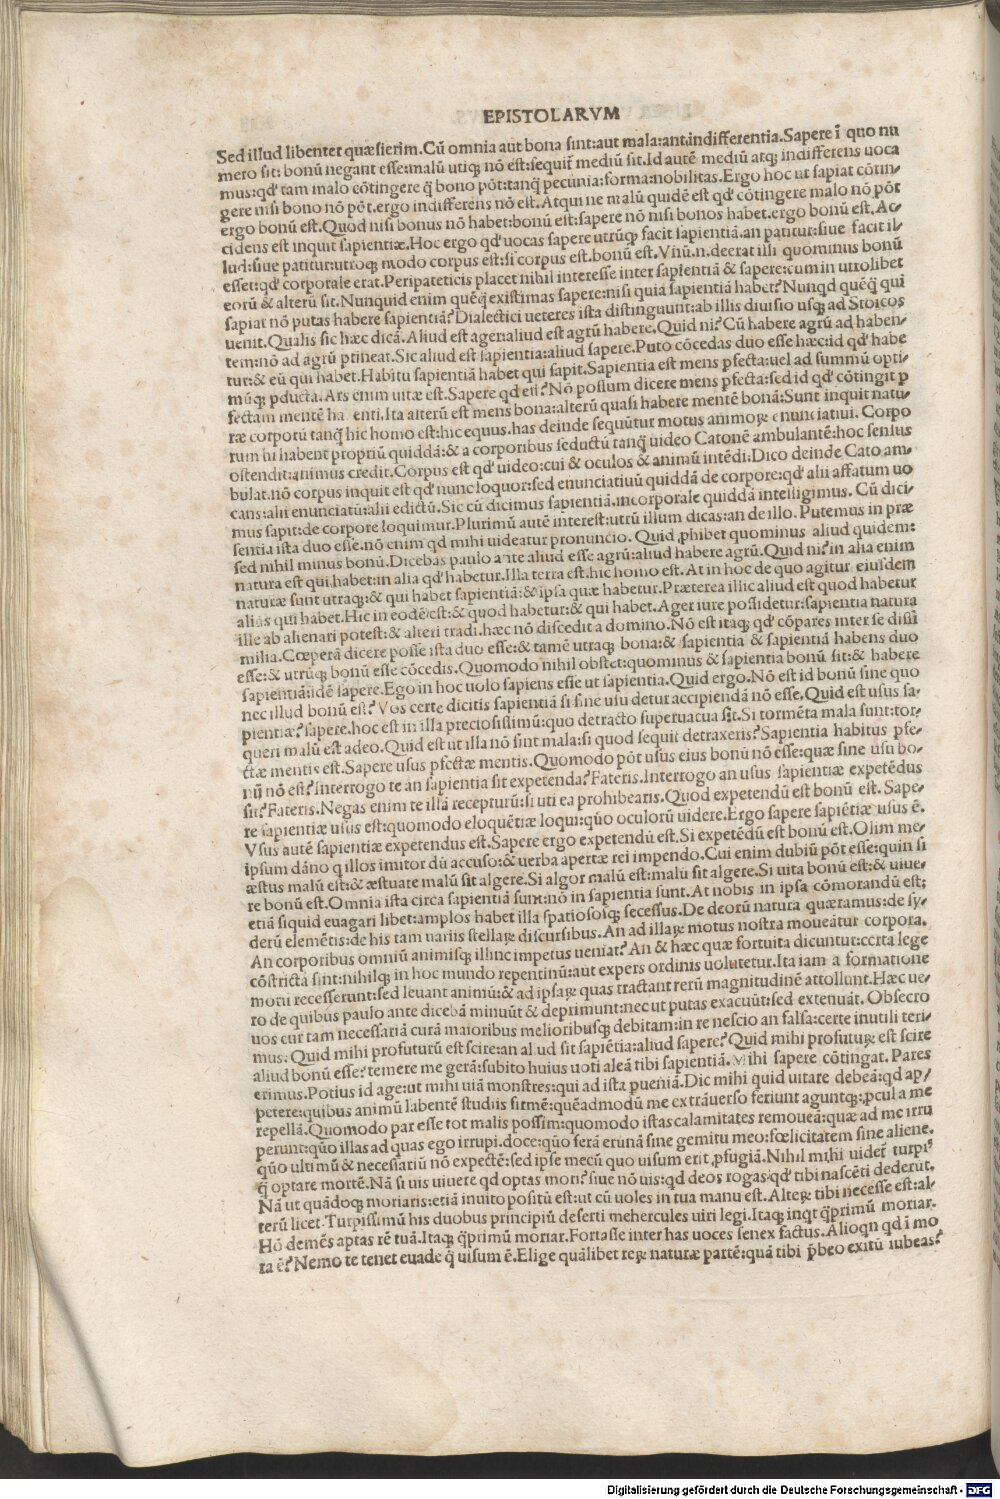 EPISTOLARVM
Sed illud libenter quæsierim.Cū omnia aut bona sint:aut mala:aut indifferentia.Sapere ī quo nu
mero sit: bonū negant esse:malū utiq; nō est:sequit̄ mediū sit.Id autē mediū atq; indifferens uoca
mus:qd' tam malo cōtingere q̄ bono pōt:tanq̄ pecunia:forma:nobilitas.Ergo hoc ut sapiat cōtin-
gere nisi bono nō pōt.ergo indifferens nō est.Atqui ne malū quidē est qd' cōtingere malo nō pōt
ergo bonū est.Quod nisi bonus nō habet:bonū est:sapere nō nisi bonos habet.ergo bonū est.Ac-
cidens est inquit sapientiæ.Hoc ergo qd' uocas sapere utrūq; facit sapientiā.an patitur:siue facit il-
lud:siue patitur:utroq; modo corpus est:si corpus est.bonū est.Vnū.n.deerat illi quominus bonū
esset:qd' corporale erat.Peripateticis placet nihil interesse inter sapientiā & sapere:cum in utrolibet
eorū & alterū sit.Nunquid enim quēq̄ existimas sapere:nisi quia sapientiā habet?Nunqd quēq̄ qui
sapiat nō putas habere sapientiā?Dialectici ueteres ista distinguunt:ab illis diuisio usq; ad Stoicos
uenit.Qualis sic hæc dicā.Aliud est ager:aliud est agrū habere.Quid ni?Cū habere agrū ad haben-
tem:nō ad agrū ptineat.Sic aliud est sapientia:aliud sapere.Puto cōcedas duo esse hæc:id qd' habe
tur:& eū qui habet.Habitu sapientiā habet qui sapit.Sapientia est mens pfecta:uel ad summū opti-
mūq; pducta.Ars enim uitæ est.Sapere qd est?Nō possum dicere mens pfecta:sed id qd' cōtingit p
fectam mentē ha enti.Ita alterū est mens bona:alterū quasi habere mentē bonā:Sunt inquit natu-
ræ corporū tanq̄ hic homo est:hic equus.has deinde sequūtur motus animoꝝ enunciatiui. Corpo
rum hi habent propriū quiddā:& a corporibus seductū tanq̄ uideo Catonē ambulantē:hoc sensus
ostendit:animus credit.Corpus est qd' uideo:cui & oculos & animū intēdi:Dico deinde Cato am-
bulat.nō corpus inquit est qd' nunc loquor:sed enunciatiuū quiddā de corpore:qd' alii affatum uo
cant:alii enunciatū:alii edictū.Sic cū dicimus sapientiā.incorporale quiddā intelligimus. Cū dici-
mus sapit:de corpore loquimur.Plurimū autē interest:utrū illum dicas:an de illo. Putemus in præ
sentia ista duo esse.nō enim qd mihi uideatur pronuncio. Quid phibet quominus aliud quidem:
sed nihil minus bonū.Dicebas paulo ante aliud esse agrū:aliud habere agrū.Quid ni?in alia enim
natura est qui habet:in alia qd' habetur.Illa terra est.hic homo est.At in hoc de quo agitur eiusdem
naturæ sunt utraq;:& qui habet sapientiā:& ipsa quæ habetur.Præterea illic aliud est quod habetur
alius qui habet.Hic in eodē est:& quod habetur:& qui habet.Ager iure possidetur:sapientia natura
ille ab alienari potest:& alteri tradi.hæc nō discedit a domino.Nō est itaq; qd' cōpares inter se dissi
milia.Cœperā dicere posse ista duo esse:& tamē utraq; bona:& sapientia & sapientiā habens duo
esse:& utrūq; bonū esse cōcedis.Quomodo nihil obstet:quominus & sapientia bonū sit:& habere
sapientiā:idē sapere.Ego in hoc uolo sapiens esse ut sapientia.Quid ergo.Nō est id bonū sine quo
nec illud bonū est?Vos certe dicitis sapientiā si sine usu detur accipiendā nō esse.Quid est usus sa-
pientiæ?sapere.hoc est in illa preciosissimū:quo detracto superuacua sit.Si tormēta mala sunt:tor-
queri malū est adeo.Quid est ut illa nō sint mala:si quod sequit detraxeris?Sapientia habitus pfe-
ctæ mentis est.Sapere usus pfectæ mentis.Quomodo pōt usus eius bonū nō esse:quæ sine usu bo-
nū nō est?Interrogo te an sapientia sit expetenda?Fateris.Interrogo an usus sapientiæ expetēdus
sit?Fateris.Negas enim te illā recepturū:si uti ea prohibearis.Quod expetendū est bonū est. Sape-
re sapientiæ usus est:quomodo eloquētiæ loqui:qūo oculorū uidere.Ergo sapere sapiētiæ usus ē.
Vsus autē sapientiæ expetendus est.Sapere ergo expetendū est.Si expetēdū est bonū est.Olim me-
ipsum dāno q illos imitor dū accuso:& uerba apertæ rei impendo.Cui enim dubiū pōt esse:quin si
æstus malū est:& æstuare malū sit algere.Si algor malū est:malū sit algere.Si uita bonū est:& uiue-
re bonū est.Omnia ista circa sapientiā sunt:nō in sapientia sunt.At nobis in ipsa cōmorandū est;
etiā siquid euagari libet:amplos habet illa spatiososq; secessus.De deorū natura quæramus:de sy-
derū elemētis:de his tam uariis stellaꝝ discursibus.An ad illaꝝ motus nostra moueātur corpora.
An corporibus omniū animisq; illinc impetus ueniat?An & hæc quæ fortuita dicuntur:certa lege
cōstricta sint:nihilq; in hoc mundo repentinū:aut expers ordinis uolutetur.Ita iam a formatione
morū recesserunt:sed leuant animū:& ad ipsaꝝ quas tractant rerū magnitudinē attollunt.Hæc ue-
ro de quibus paulo ante dicebā minuūt & deprimunt:nec ut putas exacuūt:sed extenuāt. Obsecro
uos cur tam necessariā curā maioribus melioribusq; debitam:in re nescio an falsa:certe inutili teri-
mus: Quid mihi profuturū est scire:an al ud sit sapiētia:aliud sapere?Quid mihi profutuꝝ est scire
aliud bonū esse?temere me gerā:subito huius uoti aleā tibi sapientiā. Mihi sapere cōtingat. Pares
erimus.Potius id age:ut mihi uiā monstres:qui ad ista pueniā.Dic mihi quid uitare debeā:qd ap-
petere:quibus animū labentē studiis firmē:quēadmodū me extrāuerso feriunt aguntq;:pcul a me
repellā.Quomodo par esse tot malis possim:quomodo istas calamitates remoueā:quæ ad me irru
perunt:qūo illas ad quas ego irrupi.doce:qūo ferā erunā sine gemitu meo:fœlicitatem sine alieno.
qūo ultimū & necessariū nō expectē:sed ipse mecū quo uisum erit pfugiā.Nihil mihi uidet̄ turpi⁹
q̄ optare mortē.Nā si uis uiuere qd optas mori?siue nō uis:qd deos rogas:qd' tibi nascēti dederūt.
Nā ut quādoq; moriaris:etiā inuito positū est:ut cū uoles in tua manu est.Alteꝝ tibi necesse est:al-
terū licet.Turpissimū his duobus principiū deserti mehercules uiri legi.Itaq; inqt q̄primū moriar.
Hō demēs aptas rē tuā.Itaq; q̄primū moriar.Fortasse inter has uoces senex factus.Alioqn qd ī mo
ra ē?Nemo te tenet euade q̄ uisum ē.Elige quālibet reꝝ naturæ partē:quā tibi p̄beo exitū iubeas?
Digitalisierung gefördert durch die Deutsche Forschungsgemeinschaft - DFG